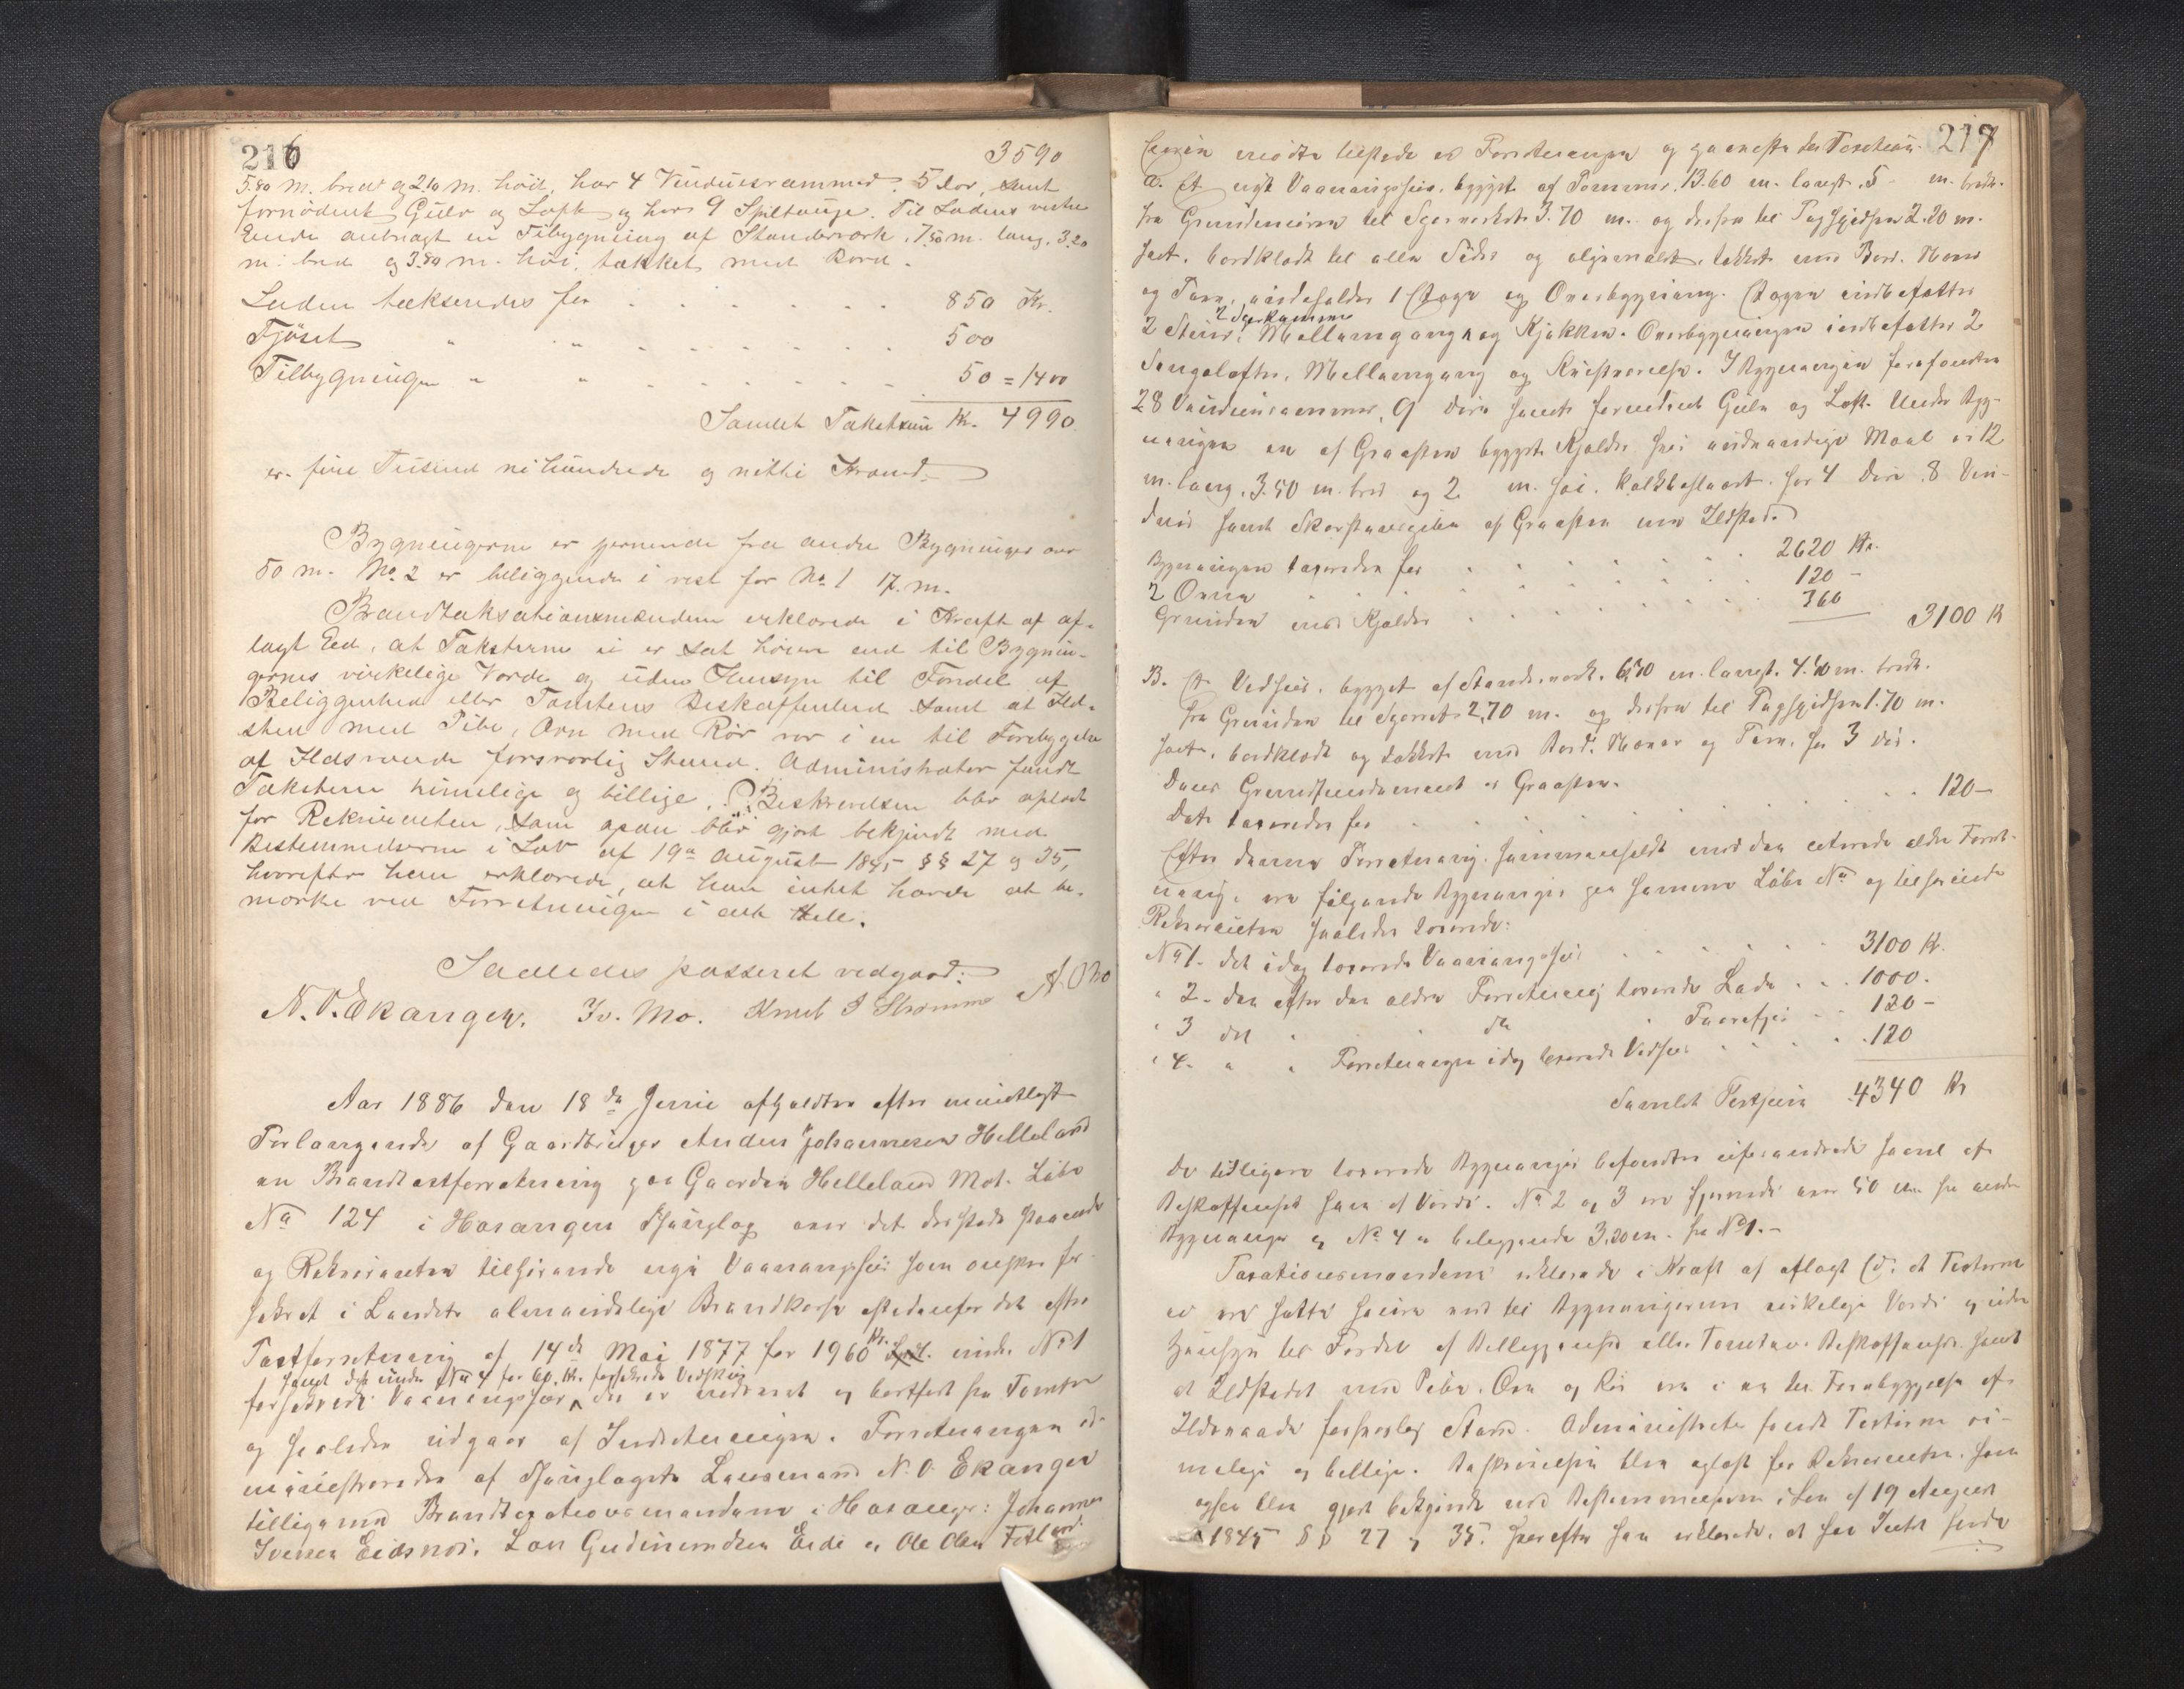 216
3590
5.80 M. bred og 2.10 M. höit, har 4 Vinduesrammer. 5 Dör, samt
fornödent Gulv og Loft og har 9 Spiltouge. Til Ladens vestre
Ende anbragt en Tilbygning af Standerværk, 7.50 m. lang. 3.20
m. bred og 3.80 m. höi, tækket med Bord.
Laden taksendes for 850 Kr.
Fjöset " " 500
Tilbygningen " " 50 = 1400
Samlet Takstsum Kr. 4990
er. fire Tusind ni hundrede og nitti Kroner.
Bygningerne er fjernende fra andre Bygninger over
50 m. No. 2 er beliggende i vest for No. 1 17. m.
Brandtaksationsmændene erklærede i Kraft af af-
lagt Eed, at Taksterne ei er sat höiere end til Bygnin-
gernes virkelige Værde og uden Hensyn til Fordel af
Beliggenhed eller Tomtens Beskaffenhed samt at Ild-
sted med Pibe, Ovn med Rör var i en til Forebyggelse
af Ildsvaade forsvarlig Stand. Administrator fandt
Taksterne rimelige og billige. Beskrivelsen blev oplæst
for Rekvirenten, som ogsaa blev gjort bekjendt med
Bestemmelserne i Lov af 19de August 1845 §§ 27 og 35,
hvorefter han erklærede, at han intet havde at be-
mærke ved Forretningen i det Hele.
Saaledes passeret vedgaar:
N. O. Ekanger. Iv. Mo. Knut I Strömme A. O Mo
Aar 1886 den 18de Juni afholdtes efter mundtligt
Forlangende af Gaardbruger Anders Johannesen Helleland
en Brandtaxtforretning paa Gaarden Helleland Mat. Löbe
No 124 i Hosanger Thinglag over det dersteds staaende
og Rekvirenten tilhörende nye Vaaningshus som önskes for-
sikret i Landets almindelige Brandkasse istedenfor det efter
Taxtforretning af 14de Mai 1877 for 1960 Kr. under No 1
samt det under No 4 for 60 Kr. forsikrede Vedskur
forsikrede Vaaningshus, der er nedrevet og bortfört fra Tomten
og saaledes udgaar af Indretningen. Forretningen ad-
ministreredes af Thinglagets Lensmand N. O. Ekanger
tilligemed Brandtaxationsmændene i Hosanger: Johannes
Iversen Eidsnes, Lars Gudmundsen Eide og Ole Olsen Fotland.
217
Eieren mödte tilstede ved Forretningen og paaviste det Taxerede
a. Et nyt Vaaningshus, bygget af Tömmer, 13.60 m. langt, 5 m. bredt.
fra Grundmuren til Gesimsket 3.70 m. og derfra til Taghöiden 2.20 m.
höit, bordklædt til alle Sider og oljemalet, tækket med Bord, Næver
og Törv, indeholder 1 Etage og Overbygning. Etagen indbefatter
2 Sengekammer
2 Stuer, Mellemgange og Kjökken. Overbygningen indbefatter 2
Sengelofter, Mellemgang og Klæsværelse. I Bygningen forefindes
28 Vinduesrammer, 9 Döre samt fornödent Gulv og Loft. Under Byg-
ningen en af Graasten bygget Kjelder, hvis indvendige Maal er 12
m. lang, 3.50 m. bred og 2 m. höi. Kalkbeslaaet. har 4 Döre 8 Vin-
duer samt Skorstenspibe af Graasten med Ildsted.
Bygningen taxeredes for 2620 Kr.
2 Ovne 120 -
Grunden med Kjelder 360
3100 Kr
B. Et Vedhus, bygget af Standerværk. 6,70 m. langt. 4.40 m. bredt.
fra Grunden til Gesimset 2,70 m. og derfra til Taghöiden 1.70 m.
höit, bordklædt og tækket med Bord, Næver og Törv, har 3 Dör.
Dens Grundfundament er Graasten.
Dette taxeredes for 120 -
Efter denne Forretning, sammenholdt med den citerede ældre Forret-
ning, er fölgende Bygninger paa samme Löbe No og tilhörende
Rekvirenten saaledes taxerede:
No 1. det idag taxerede Vaaningshus 3100 Kr.
" 2. den efter den ældre Forretning taxerede Lade 1000.
" 3 det " do " 120 -
" 4. " " Forretningen idag taxerede Vedhus 120
Samlet Taxtsum 4340 Kr
De tidligere taxerede Bygninger befandtes uforandrede saavel af
Beskaffenhed som af Værdi. No 2 og 3 er fjernede over 50 m. fra andre
Bygninger og No. 4 er beliggende 3.20 m. fra No 1. -
Taxationsmændene erklærede i Kraft af aflagt Ed, at Taxterne
ei er satte höiere end til Bygningernes virkelige Værdi og uden
Hensyn til Fordel af Beliggenhed eller Tomtens Beskaffenhed, samt
at Ildstedet med Pibe, Ovn og Rör er i en til Forebyggelse af
Ildsvaade forsvarlig Stand. Administrator fandt Taxterne ri-
melige og billige. Beskrivelsen blev oplæst for Rekvirenten, som
ogsaa blev gjort bekjendt med Bestemmelserne i Lov af 19 August
1845 §§ 27 og 35. hvorefter han erklærede, at han Intet havde